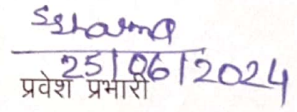 SSharma
25/06/2024
प्रवेश प्रभारी